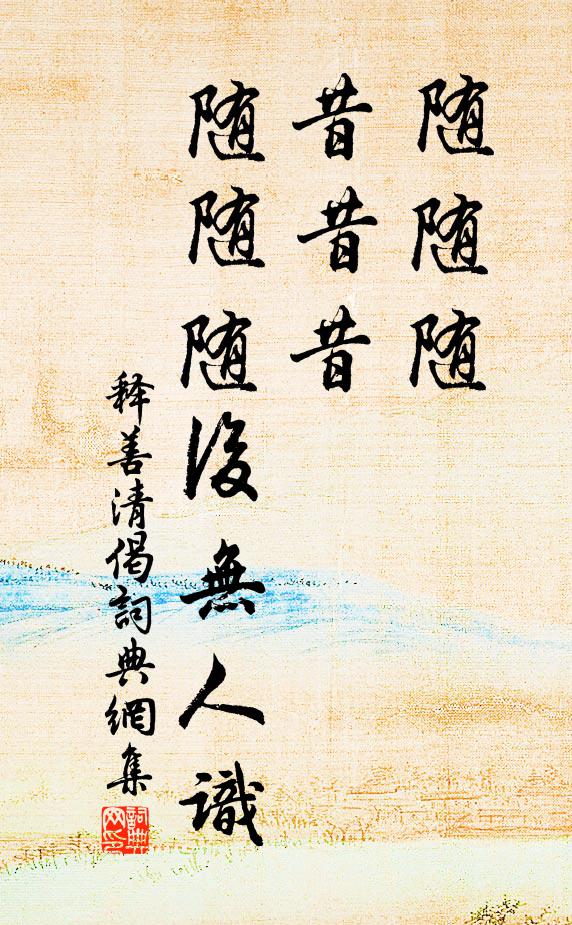 随随随
昔昔昔
随随随後無人識
释善清偈詞典網集
詞典网印